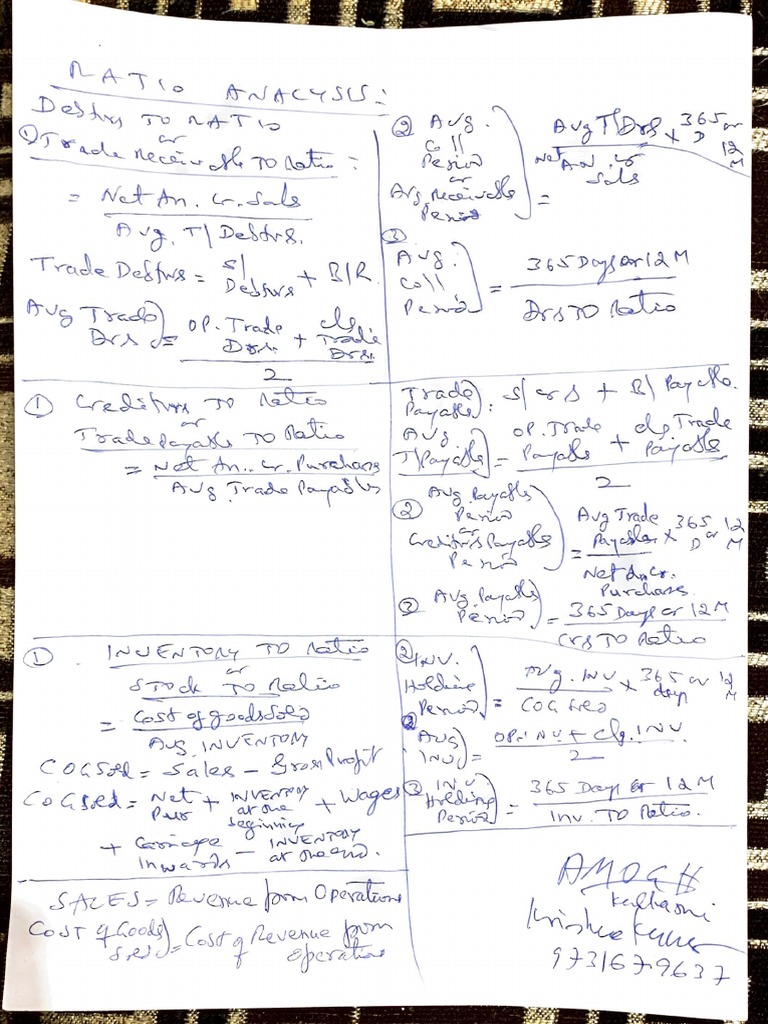 RATIO ANALYSIS:
Debtors TO RATIO
or
① Trade Receivable TO Ratio =
= Net An. Cr. Sales
Avg. T/ Debtors.
Trade Debtors = S/ Debtors + B/R
Avg Trade Drs) = OP. Trade Drs. + Clg Trade Drs.
2
② Avg. Coll Period
or
Avg. Receivable Period
= Avg T/Drs x 365 D or 12 M
Net An. Cr Sales
③ Avg. Coll Period) = 365 Days or 12 M
Drs TO Ratio
① Creditors TO Ratio
or
Trade Payable TO Ratio
= Net An. Cr. Purchases
Avg Trade Payables
Trade Payables): S/ Crs + B/ Payable.
Avg. T/Payables) = OP. Trade Payables + Clg Trade Payables
2
② Avg Payables Period
or
Creditors Payables Period
= Avg Trade Payables x 365 D or 12 M
Net An. Cr. Purchases
③ Avg Payables Period) = 365 Days or 12 M
Crs TO Ratio
① INVENTORY TO Ratio
or
Stock TO Ratio
= Cost of goods Sold
Avg INVENTORY
COG Sold = Sales - Gross Profit
COG Sold = Net Pur + INVENTORY at the beginning + Wages
+ Carriage Inwards - INVENTORY at the end.
② INV. Holding Period) = Avg. INV x 365 days or 12 M
COG Sold
② Avg INV.) = OP. INV + Clg. INV
2
③ INV. Holding Period) = 365 Days or 12 M
Inv. TO Ratio.
SALES = Revenue from Operations
COST of Goods Sold) = Cost of Revenue from operations
AMOGH
Krishna Kumar
9731679637